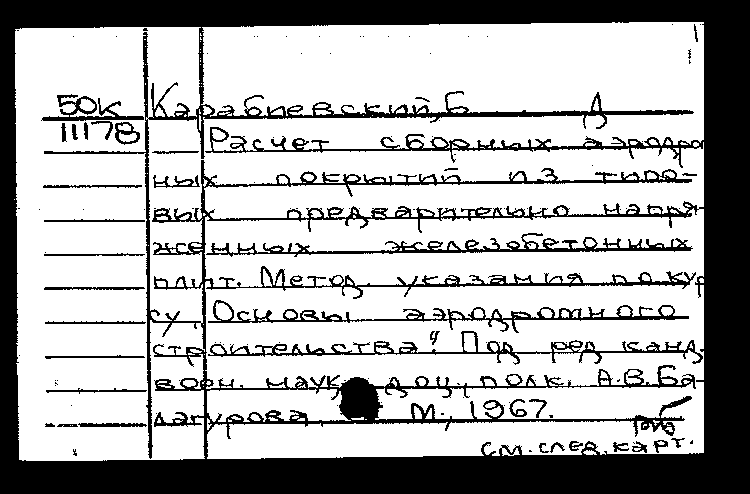 50К Карабиевский, Б Д
11178 Расчет сборных аэродро
ных покрытий из типо-
вых предварительно напря-
женных железобетонных
плит. Метод. указания по кур
су „Основы аэродромного
строительства". Под ред канд.
воен. наук доц., полк. А.В. Ба-
лагурова М., 1967.
см. след. карт.